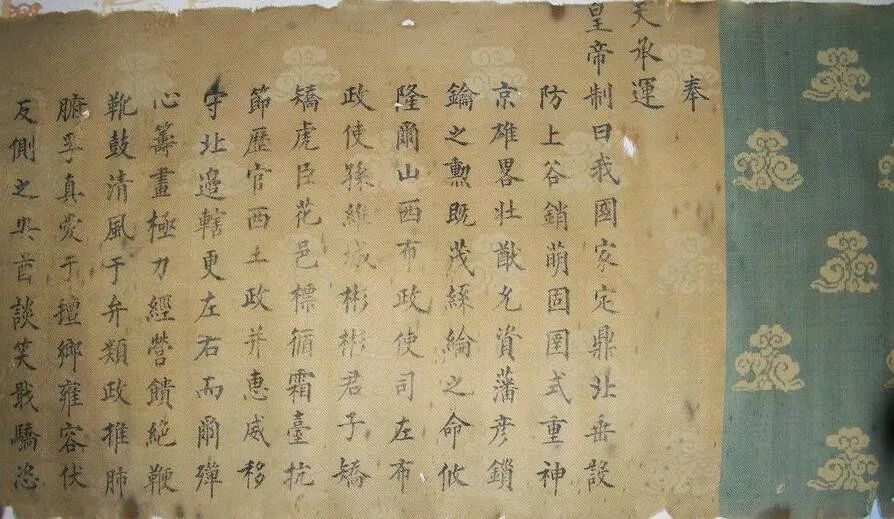 奉
天承運
皇帝制曰我國家定鼎北垂設
防上谷銷萌固圉式重神
京雄畧壯猷允資藩彦鎖
鑰之勳既茂絲綸之命攸
隆爾山西布政使司左布
政使孫維城彬彬君子矯
矯虎臣花邑標循霜臺抗
節歷官西土政并惠威移
守北邊轄更左右而爾殫
心籌畫極力經營饋絕鞭
靴鼓清風于弁類政推肺
腑孚真愛于擅鄉雍容伏
反側之 酋談笑戢驕恣